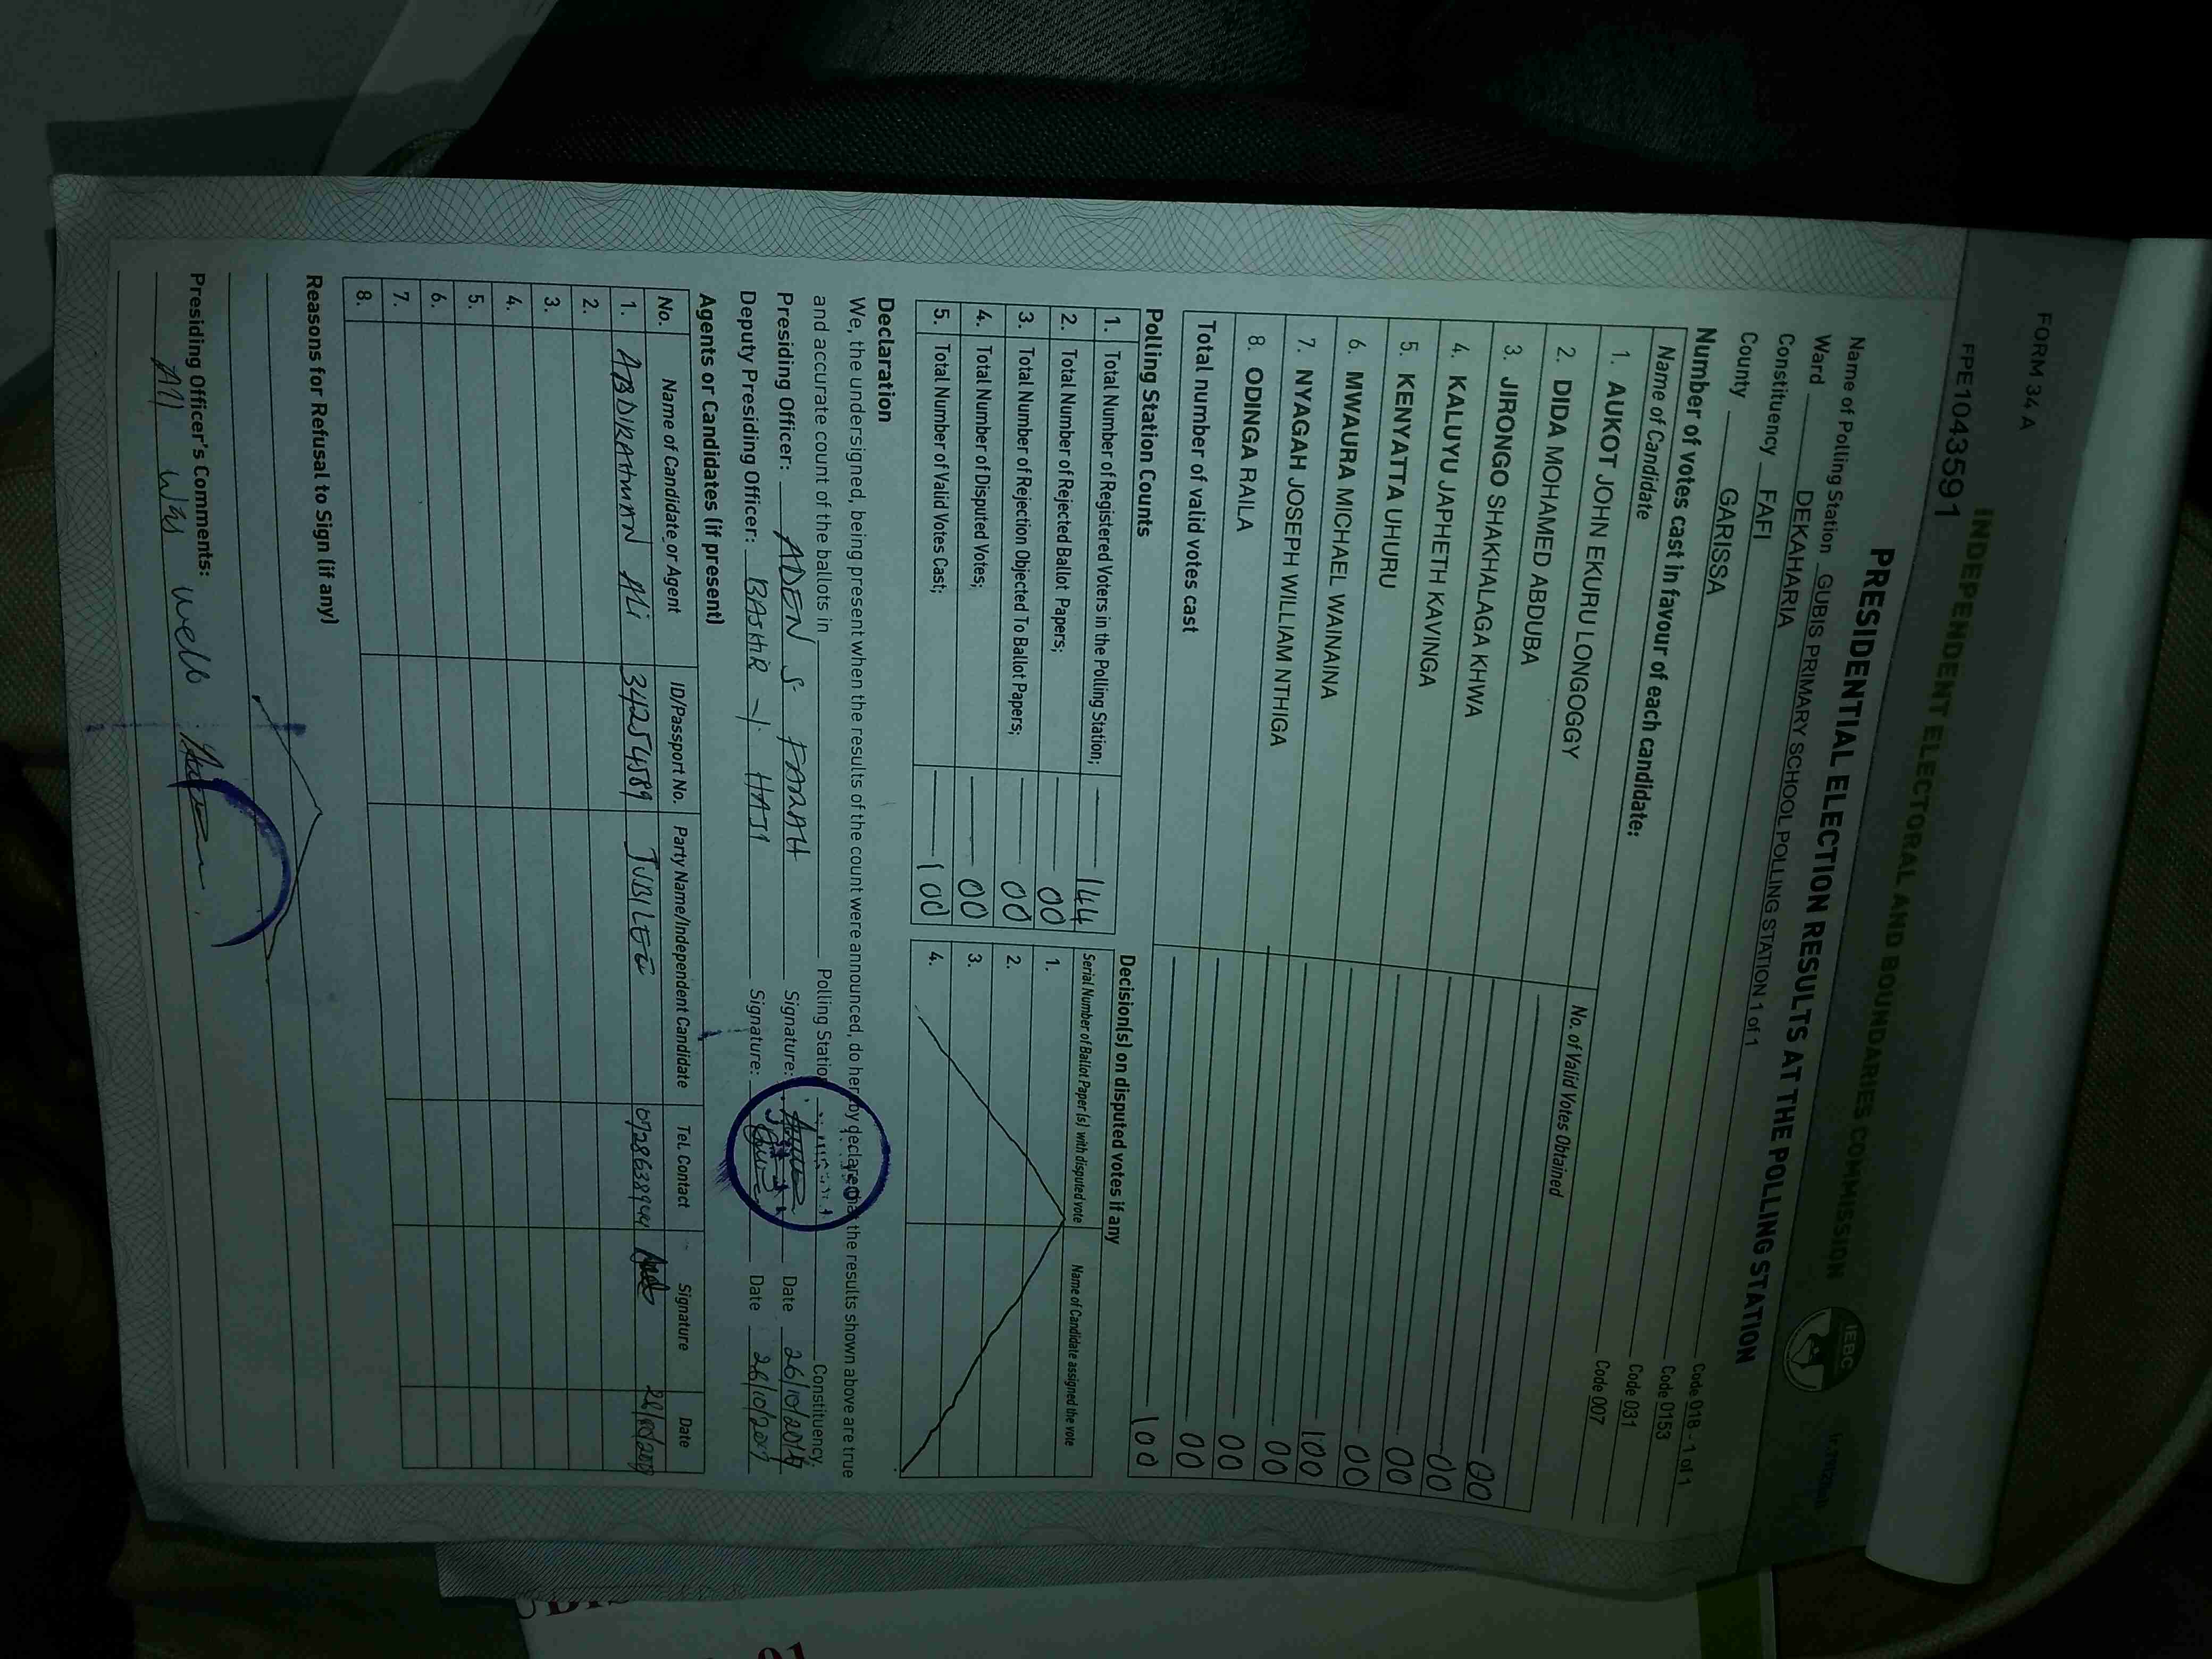 FORM 34 A
FPE1043591
INDEPENDENT ELECTORAL AND BOUNDARIES COMMISSION
IEBC
PRESIDENTIAL ELECTION RESULTS AT THE POLLING STATION
Name of Polling Station GUBIS PRIMARY SCHOOL POLLING STATION 1 of 1 Code 018 - 1 of 1
Ward DEKAHARIA Code 0153
Constituency FAFI Code 031
County GARISSA Code 007
Number of votes cast in favour of each candidate:
Name of Candidate No. of Valid Votes Obtained
1. AUKOT JOHN EKURU LONGOGGY 00
2. DIDA MOHAMED ABDUBA 00
3. JIRONGO SHAKHALAGA KHWA 00
4. KALUYU JAPHETH KAVINGA 00
5. KENYATTA UHURU 100
6. MWAURA MICHAEL WAINAINA 00
7. NYAGAH JOSEPH WILLIAM NTHIGA 00
8. ODINGA RAILA 00
Total number of valid votes cast 100
Polling Station Counts
1. Total Number of Registered Voters in the Polling Station; 144
2. Total Number of Rejected Ballot Papers; 00
3. Total Number of Rejection Objected To Ballot Papers; 00
4. Total Number of Disputed Votes; 00
5. Total Number of Valid Votes Cast; 100
Decision(s) on disputed votes if any
Serial Number of Ballot Paper (s) with disputed vote Name of Candidate assigned the vote
1.
2.
3.
4.
Declaration
We, the undersigned, being present when the results of the count were announced, do hereby declare that the results shown above are true
and accurate count of the ballots in Polling Station Constituency.
Presiding Officer: ADEN S. FARAH Signature: Date 26/10/2017
Deputy Presiding Officer: BASHIR HAJI Signature: Date 26/10/2017
Agents or Candidates (if present)
No. Name of Candidate or Agent ID/Passport No. Party Name/Independent Candidate Tel. Contact Signature Date
1. ABDIRAHMAN Ali 34254589 JUBILEE
2.
3.
4.
5.
6.
7.
8.
Reasons for Refusal to Sign (if any)
Presiding Officer's Comments:
All was well